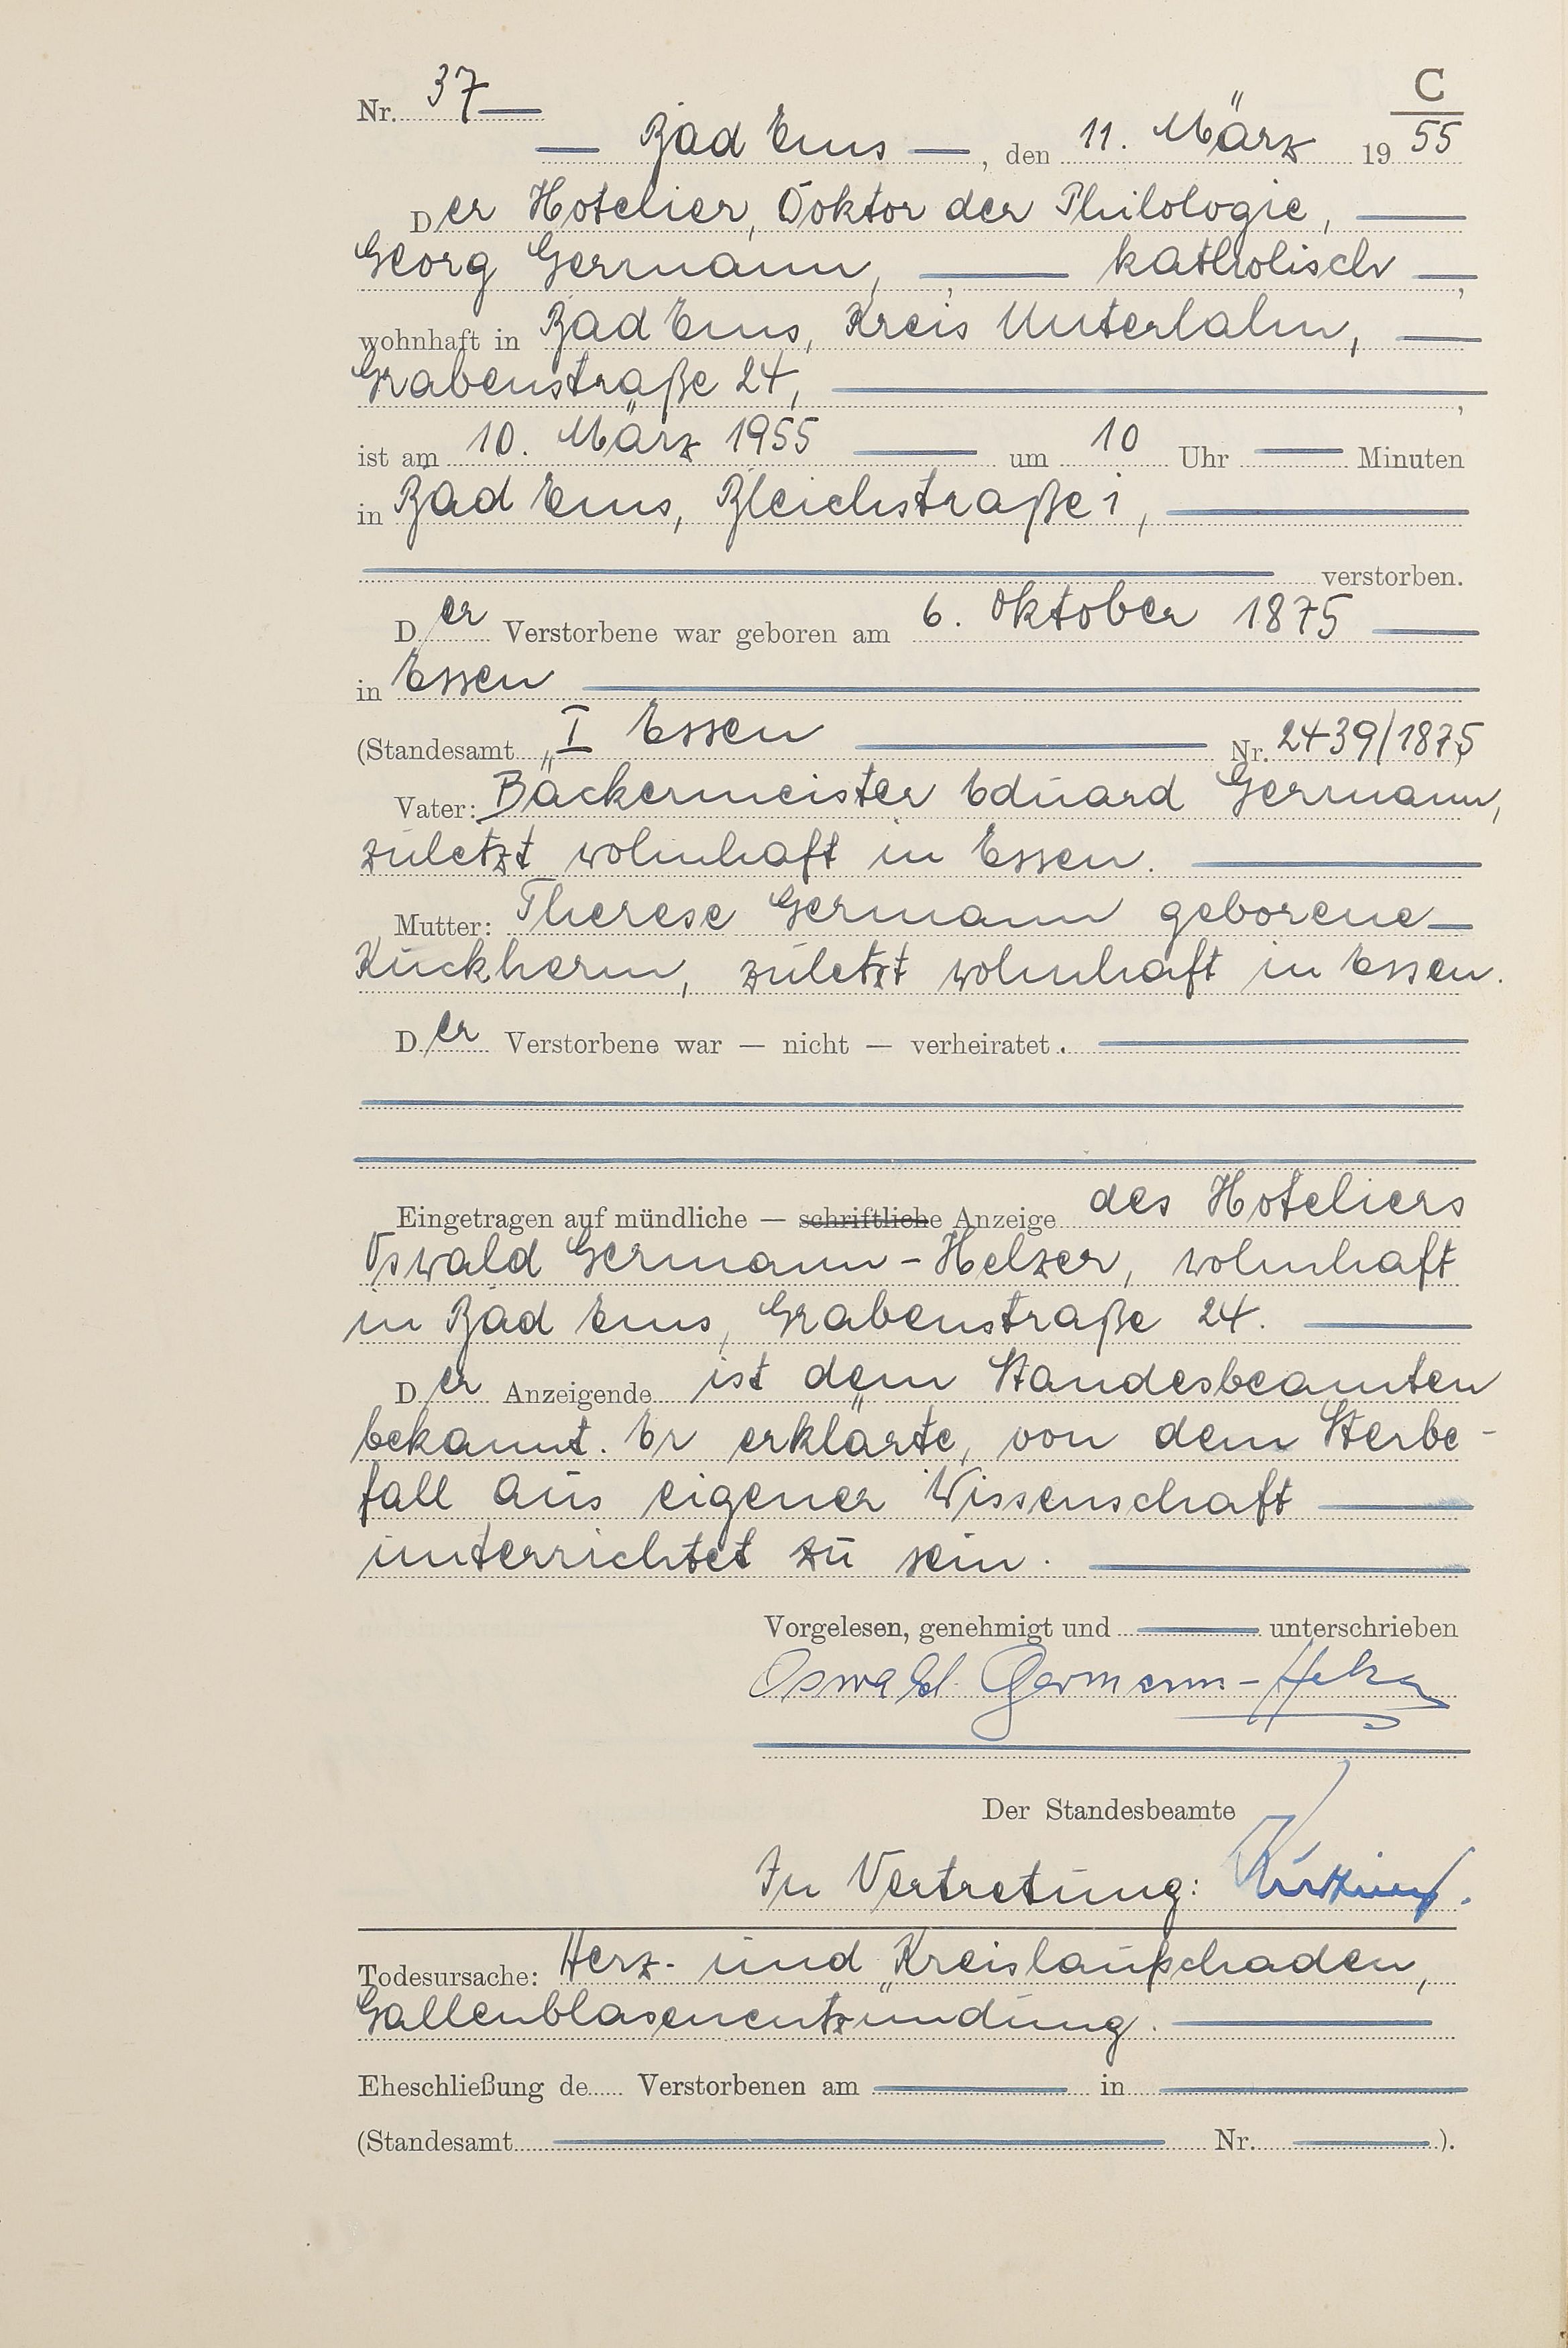 C
Nr. 37
Bad Ems, den 11. März 1955
Der Hotelier, Doktor der Philologie,
Georg Germann, katholisch,
wohnhaft in Bad Ems, Kreis Unterlahn,
Grabenstraße 24,
ist am 10. März 1955 um 10 Uhr Minuten
in Bad Ems, Bleichstraße 1,
verstorben.
Der Verstorbene war geboren am 6. Oktober 1875
in Essen
(Standesamt I Essen Nr. 2439/1875
Vater: Bäckermeister Eduard Germann,
zuletzt wohnhaft in Essen.
Mutter: Therese Germann geborene
Kuckherm, zuletzt wohnhaft in Essen.
Der Verstorbene war — nicht — verheiratet.
Eingetragen auf mündliche — schriftliche Anzeige des Hoteliers
Oswald Germann-Helzer, wohnhaft
in Bad Ems, Grabenstraße 24.
Der Anzeigende ist dem Standesbeamten
bekannt. Er erklärte, von dem Sterbe-
fall aus eigener Wissenschaft
unterrichtet zu sein.
Vorgelesen, genehmigt und unterschrieben
Oswald Germann-Helzer
Der Standesbeamte
In Vertretung:
Todesursache: Herz- und Kreislaufschaden,
Gallenblasenentzündung.
Eheschließung de Verstorbenen am in
(Standesamt Nr. ).